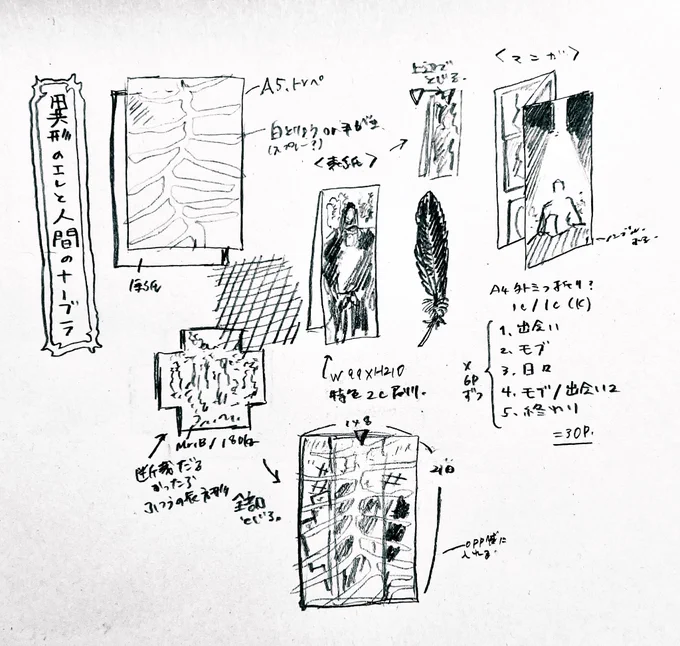 異形のエレと人間のナーブラ
A5.トレペ
白とりょう or ネガ生
(スプレー?)
<表紙>
上辺で
とじる。
<マンガ>
W99×H210
特色2C刷り。
A4外三つ折り?
1c/1c(K)
×
6P
ずつ
1. 出会い
2. モブ
3. 日々
4. モブ/出会い2
5. 終わり
=30P.
MrB/180kg
断裁だる
かったら
ふつうの長方形
全部
とじる。
148
210
OPP袋に
入れる。